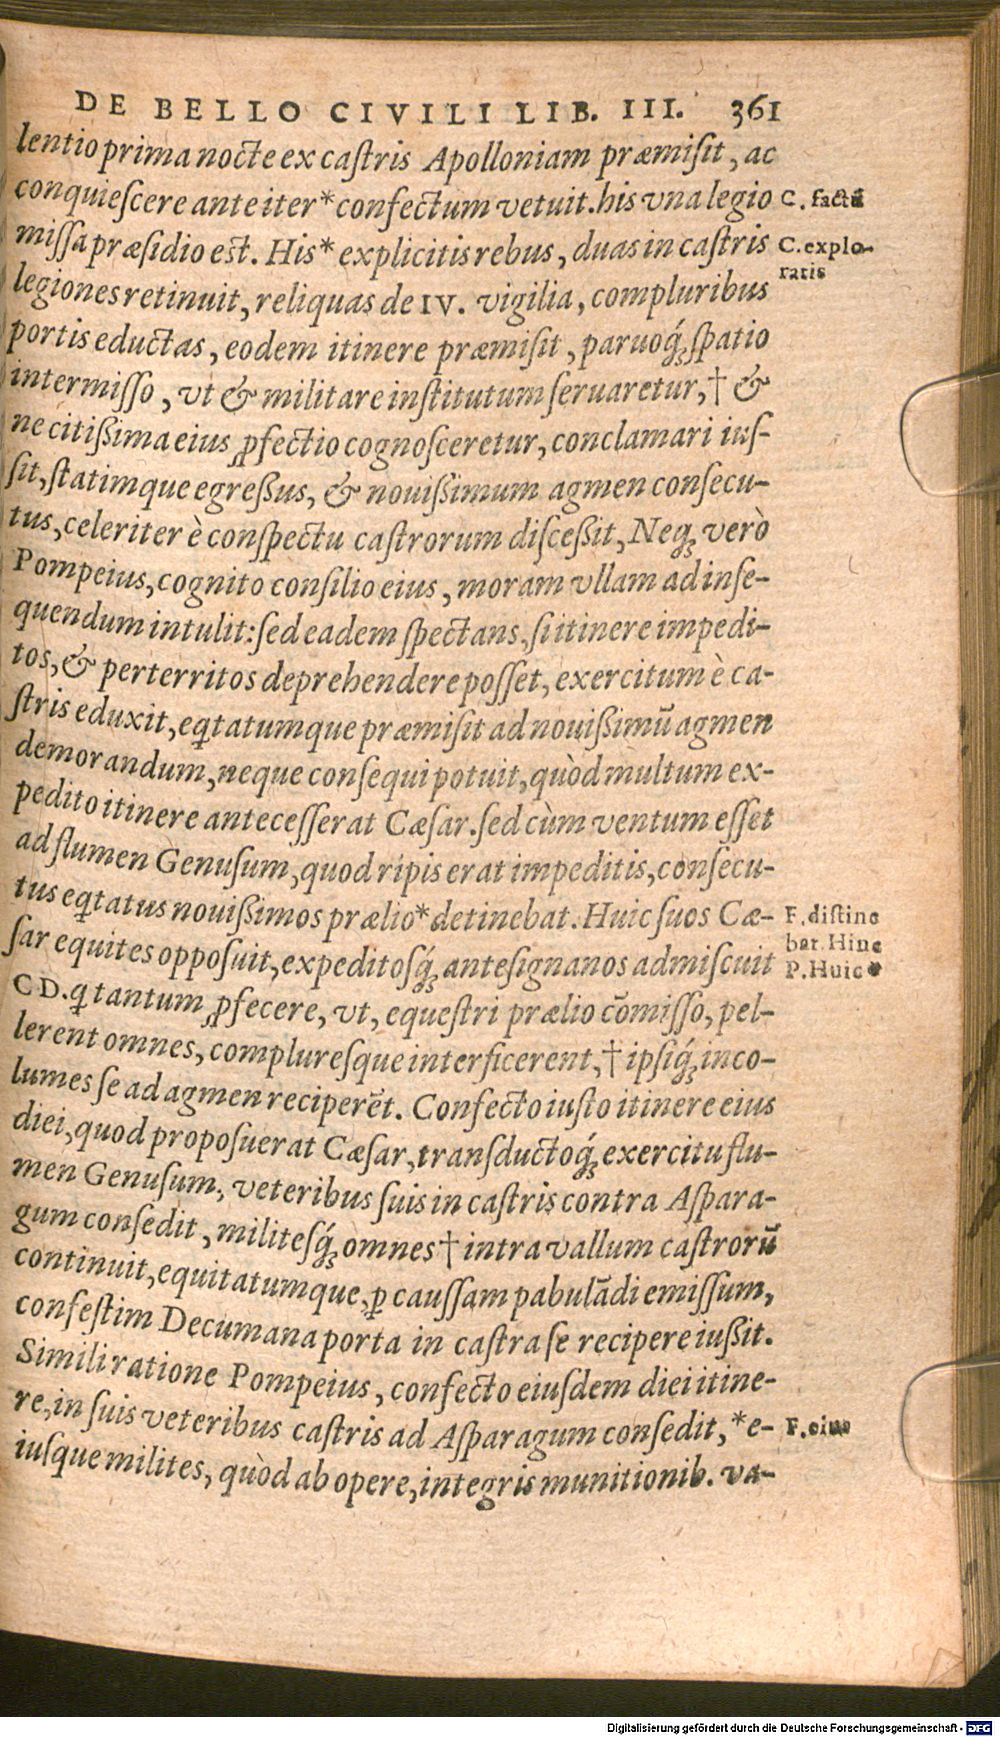 DE BELLO CIVILI LIB. III. 361
lentio prima nocte ex castris Apolloniam præmisit, ac
conquiescere ante iter* confectum vetuit. his vna legio
C. facta
missa præsidio est. His* explicitis rebus, duas in castris
C. explo-
ratis
legiones retinuit, reliquas de IV. vigilia, compluribus
portis eductas, eodem itinere præmisit, paruoq́; spatio
intermisso, vt & militare institutum seruaretur, † &
ne citißima eius ꝓfectio cognosceretur, conclamari ius-
sit, statimque egreßus, & nouißimum agmen consecu-
tus, celeriter è conspectu castrorum disceßit, Neq; verò
Pompeius, cognito consilio eius, moram vllam ad inse-
quendum intulit: sed eadem spectans, si itinere impedi-
tos, & perterritos deprehendere posset, exercitum è ca-
stris eduxit, eq̃tatumque præmisit ad nouißimũ agmen
demorandum, neque consequi potuit, quòd multum ex-
pedito itinere antecesserat Cæsar. sed cùm ventum esset
ad flumen Genusum, quod ripis erat impeditis, consecu-
tus eq̃tatus nouißimos prælio* detinebat. Huic suos Cæ-
F. distine
bat. Hinc
P. Huic
sar equites opposuit, expeditosq́; antesignanos admiscuit
CD. q̃ tantum ꝓfecere, vt, equestri prælio cõmisso, pel-
lerent omnes, compluresque interficerent, † ipsiq́; inco-
lumes se ad agmen reciperẽt. Confecto iusto itinere eius
diei, quod proposuerat Cæsar, transductoq́; exercitu flu-
men Genusum, veteribus suis in castris contra Aspara-
gum consedit, militesq́; omnes † intra vallum castrorũ
continuit, equitatumque, ꝑ caussam pabulãdi emissum,
confestim Decumana porta in castra se recipere iußit.
Simili ratione Pompeius, confecto eiusdem diei itine-
re, in suis veteribus castris ad Asparagum consedit, *e-
F. eius
iusque milites, quòd ab opere, integris munitionib. va-
Digitalisierung gefördert durch die Deutsche Forschungsgemeinschaft - DFG